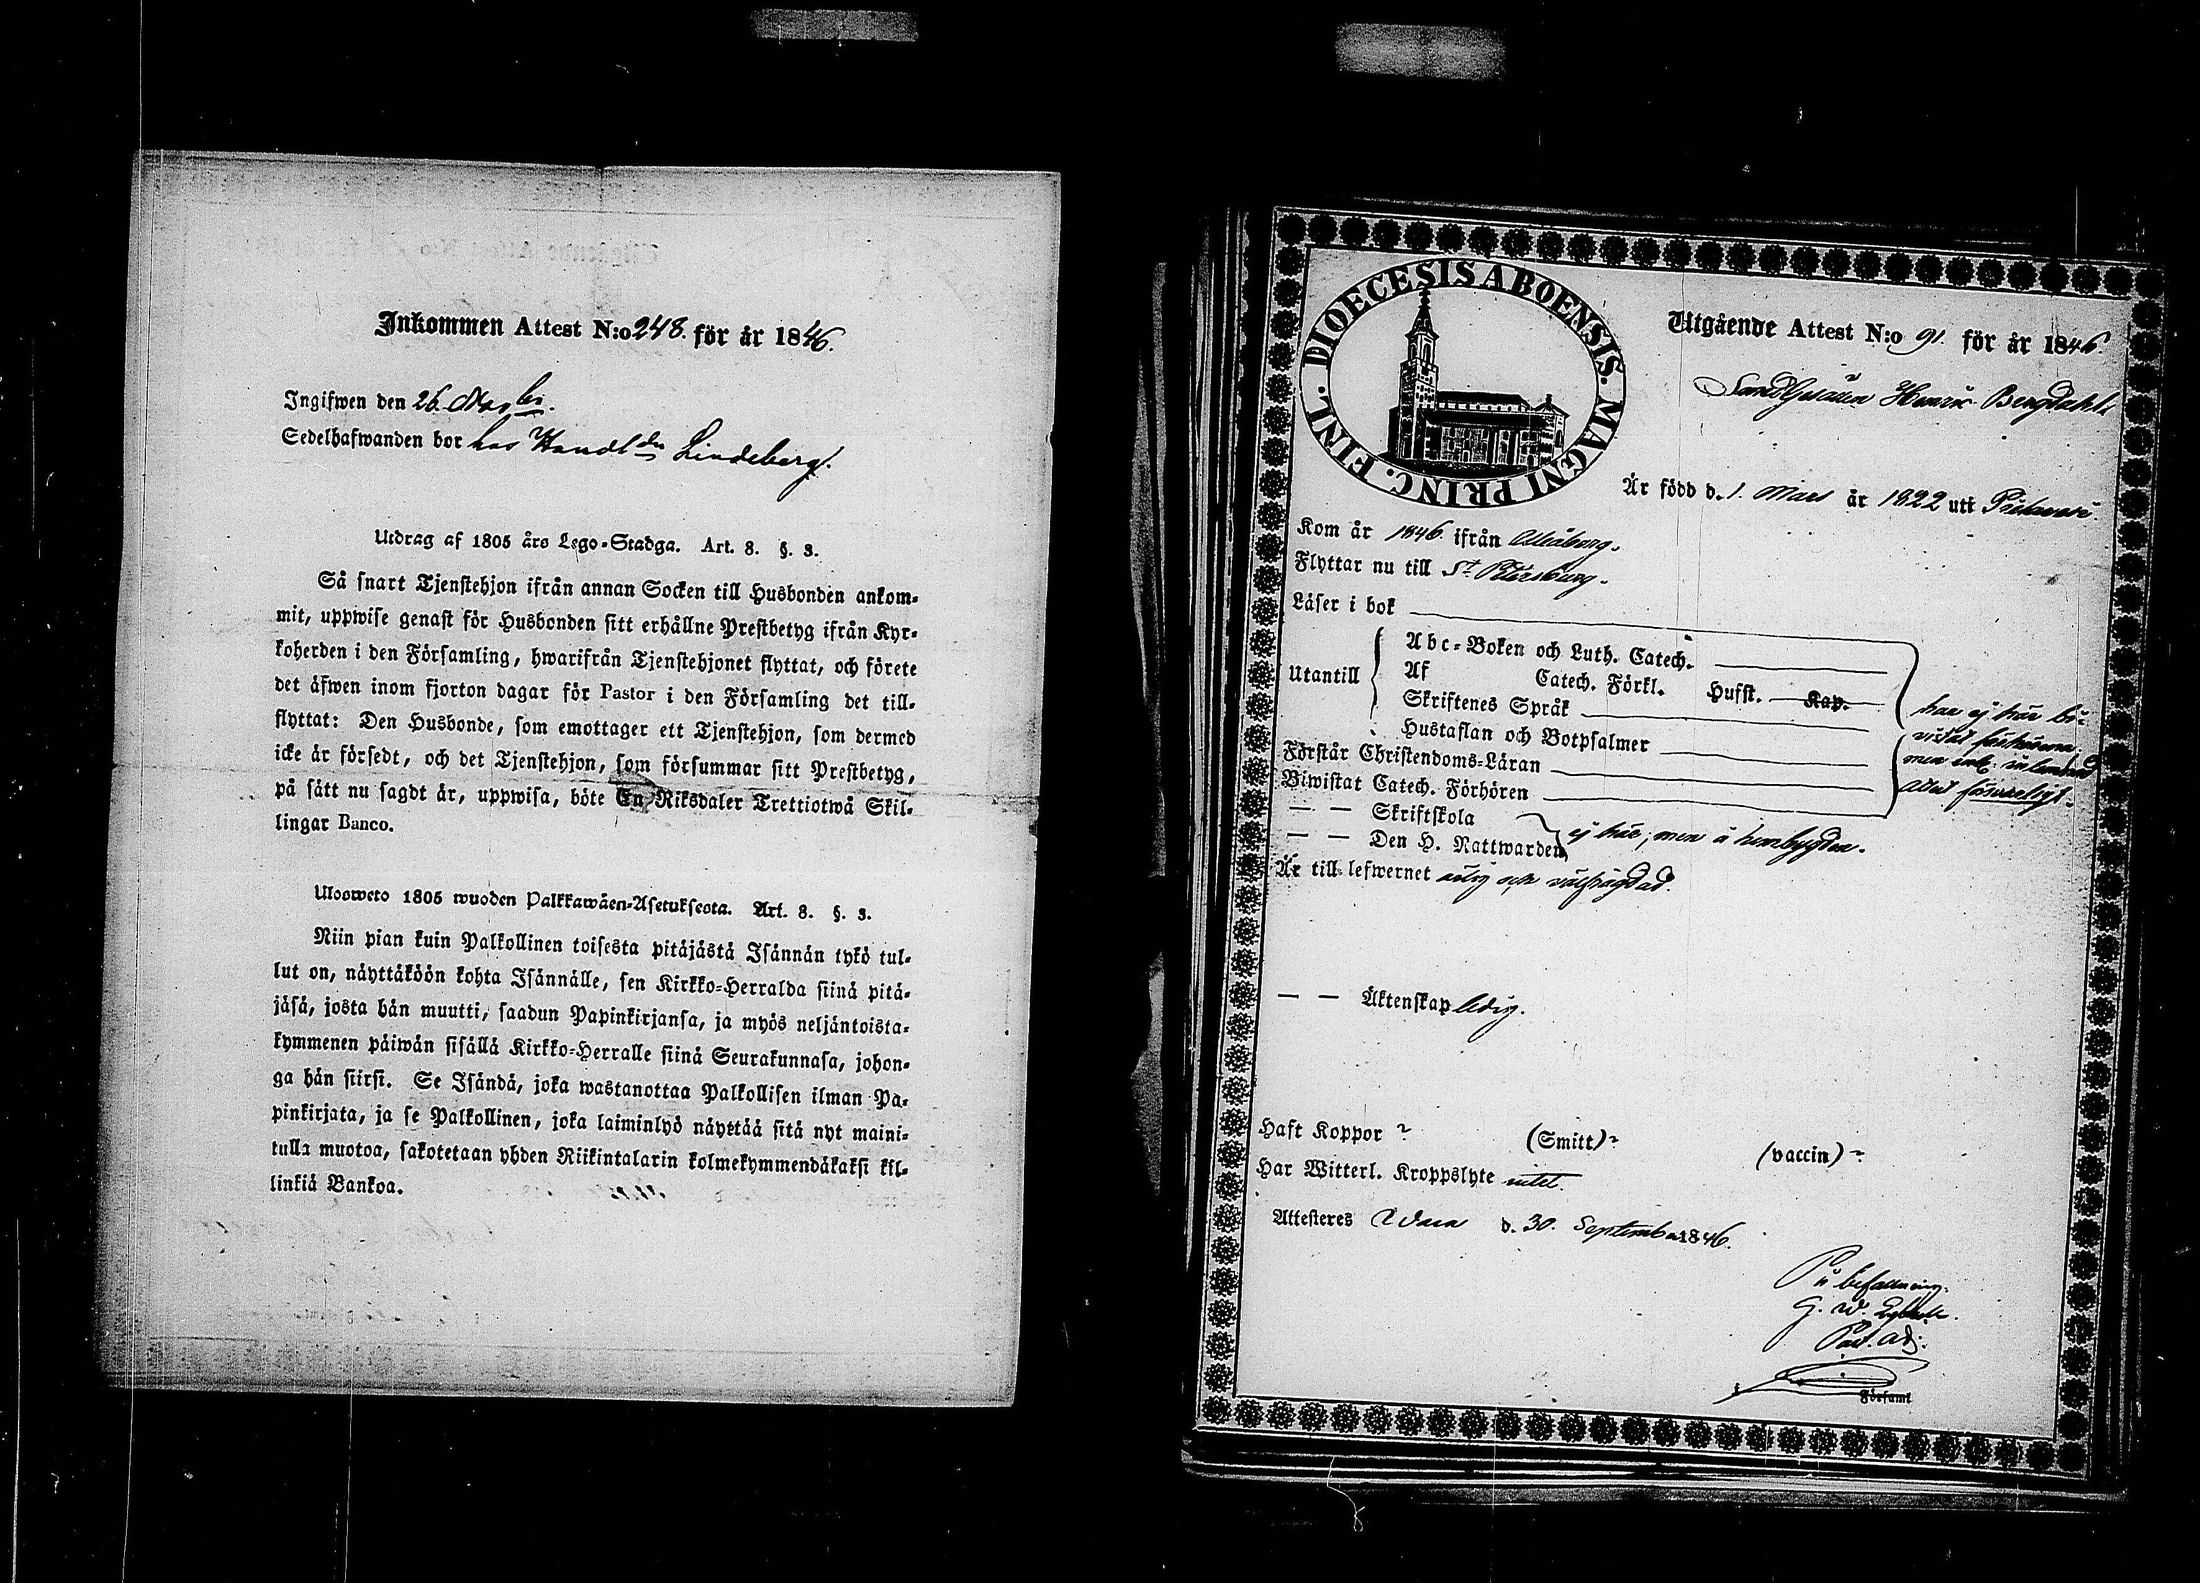 Inkommen Attest N:o 248. för år 1846.
Ingifwen den 26.
Sedelhafwanden bor hos Handl:den Lindeberg.
Utdrag af 1805 års Lego-Stadga. Art. 8. §. 3.
Så snart Tjenstehjon ifrån annan Socken till Husbonden ankom-
mit, uppwise genast för Husbonden sitt erhållne Prestbetyg ifrån Kyr-
koherden i den Församling, hwarifrån Tjenstehjonet flyttat, och förete
det äfwen inom fjorton dagar för Pastor i den Församling det till-
flyttat: Den Husbonde, som emottager ett Tjenstehjon, som dermed
icke är försedt, och det Tjenstehjon, som försummar sitt Prestbetyg,
på sätt nu sagdt är, uppwisa, böte En Riksdaler Trettiotwå Skil-
lingar Banco.
Ulosweto 1805 wuoden Palkkawäen-Asetuksesta. Art. 8. §. 3.
Niin pian kuin Palkollinen toisesta pitäjästä Isännän tykö tul-
lut on, näyttäköön kohta Isännälle, sen Kirkko-Herralda siinä pitä-
jäsä, josta hän muutti, saadun Papinkirjansa, ja myös neljäntoista-
kymmenen päiwän sisällä Kirkko-Herralle siinä Seurakunnasa, johon-
ga hän siirsi. Se Isändä, joka wastanottaa Palkollisen ilman Pa-
pinkirjata, ja se Palkollinen, joka laiminlyö näyttää sitä nyt maini-
tulla muotoa, sakotetaan yhden Riikintalarin kolmekymmendäkaksi kil-
linkiä Bankoa.
DIOECESIS ABOENSIS. MAGNI PRINC. FINL.
Utgående Attest N:o 91. för år 1846.
Henrik Bergdahl
Är född d. 1. Mars år 1822 uti
Kom år 1846. ifrån Uleåborg.
Flyttar nu till St Petersburg.
Läser i bok
Utantill
Abc-Boken och Luth. Catech.
Af Catech. Förkl. Husst. Kap.
Skriftenes Språk
Hustaflan och Botpsalmer
Förstår Christendoms-Läran
Biwistat Catech. Förhören
har ej här bi-
vistat förhören.
men enl. inlemnad
Attest försvarligt.
— — Skriftskola
— — Den H. Nattwarden
ej här, men i hembygden.
Är till lefwernet ärlig och välfrägdad.
— — Äktenskap ledig.
Haft Koppor ? (Smitt) ? (vaccin) ?
Har Witterl. Kroppslyte intet.
Attesteres Wasa d. 30. September 1846.
På befallning.
G. W.
Past. Adj.
Förfaml